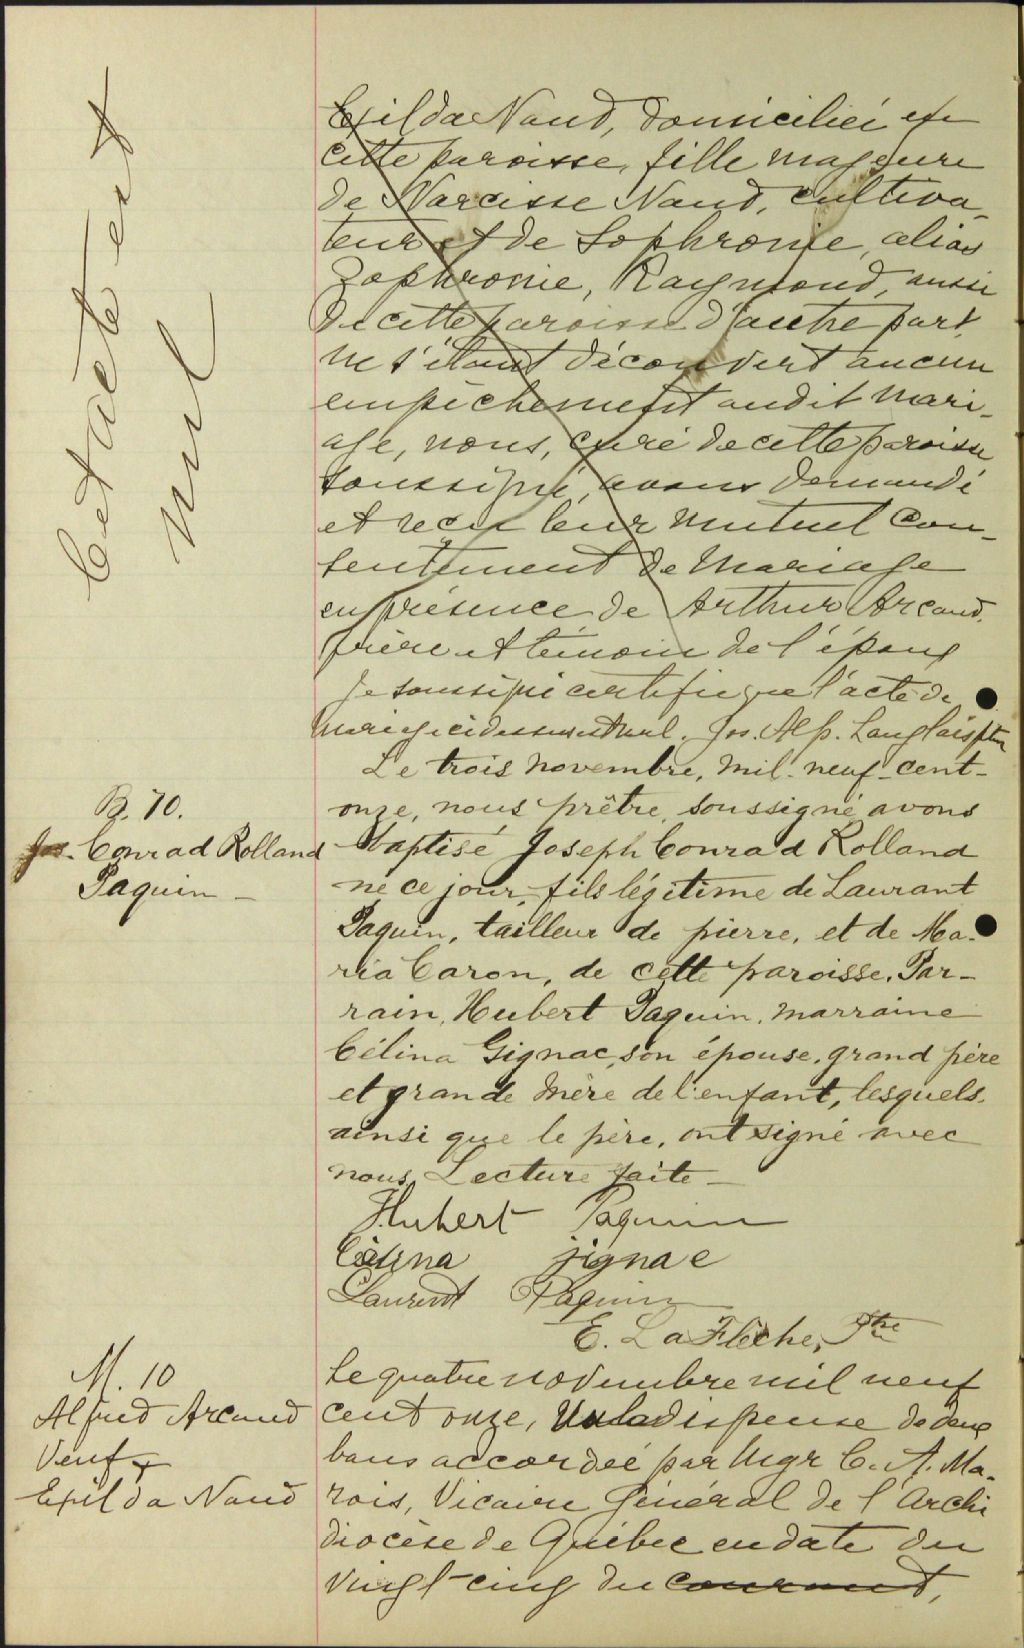 Cet acte est
nul
Exilda Naud, domiciliée en
cette paroisse, fille majeure
de Narcisse Naud, cultiva-
teur et de Sophronie, alias
Zophronie, Raymond, aussi
de cette paroisse d'autre part,
ne s'étant découvert aucun
empêchement audit mari-
age, nous, curé de cette paroisse
soussigné, avons demandé
et reçu leur mutuel con-
sentement de mariage
en présence de Arthur Arcand,
frère et témoin de l'époux
Je soussigné certifie que l'acte de
mariage ci dessus est nul. Jos. Alp. Langlais ptre
B. 70.
Jos. Conrad Rolland
Paquin -
Le trois novembre, mil-neuf-cent-
onze, nous prêtre, soussigné avons
baptisé Joseph Conrad Rolland
né ce jour, fils légitime de Laurant
Paquin, tailleur de pierre, et de Ma-
ria Caron, de cette paroisse. Par-
rain, Hubert Paquin, marraine
Célina Gignac, son épouse, grand père
et grande mère de l'enfant, lesquels,
ainsi que le père, ont signé avec
nous. Lecture faite -
Hubert Paquin
Célina jignac
Laurent Paquin
E. LaFlèche, Ptre
M. 10
Alfred Arcand
Veuf &
Exilda Naud
Le quatre novembre mil neuf
cent onze, Vu la dispense de deux
bans accordée par Mgr C. A. Ma-
rois, Vicaire Général de l'Archi
diocèse de Québec en date du
vingt-cinq du courant,